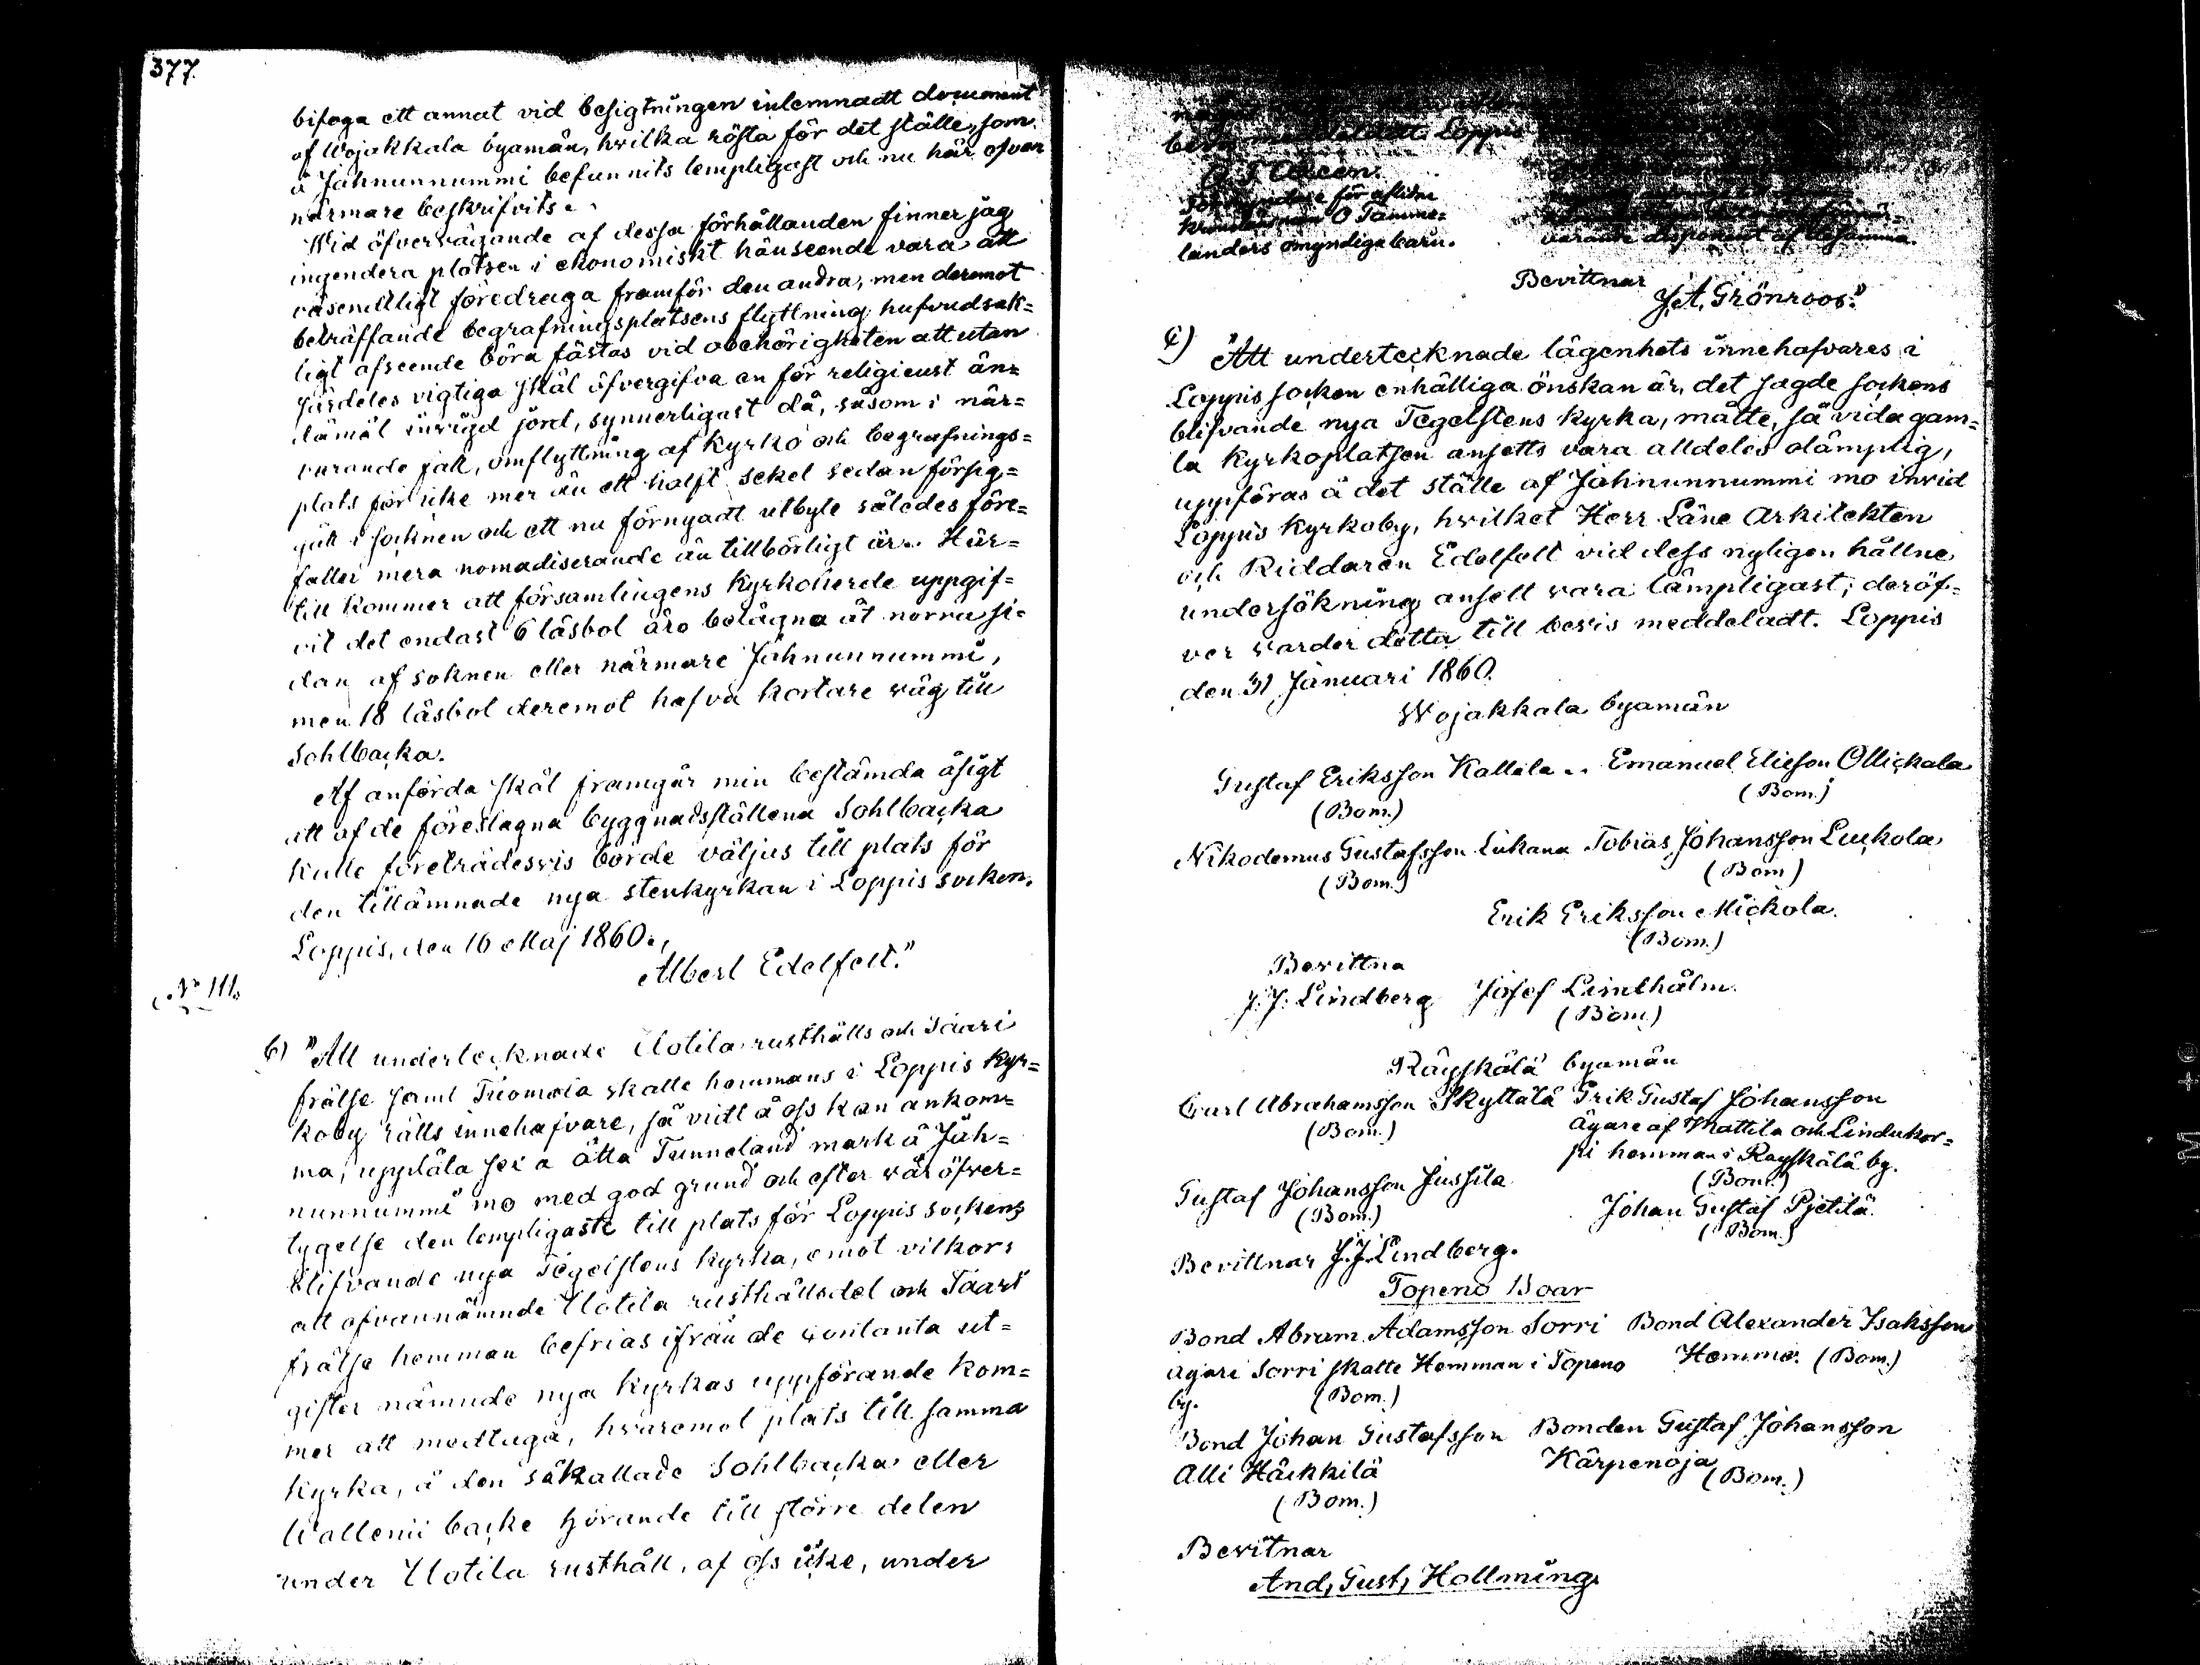 377.
bifoga ett annat vid besigtningen inlemnadt document
af Wojakkala byamän, hvilka rösta för det ställe, som
å Jähnunnummi befunnits lempligast och nu här ofvan
närmare beskrifvits.
Wid öfvervägande af dessa förhållanden finner jag
ingendera platsen i ekonomiskt hänseende vara att
väsendtligt föredraga framför den andra, men deremot
beträffande begrafningsplatsens flyttning hufvudsak=
ligt afseende böra fästas vid obehörigheten att utan
särdeles vigtiga skäl öfvergifva en för religieust än=
damål invigd jord, synnerligast då, såsom i när=
varande fall, omflyttning af kyrko och begrafnings=
plats för icke mer än ett halft sekel sedan försig=
gått i socknen och ett nu förnyadt utbyte således före=
faller mera nomadiserande än tillbörligt är. Här=
till kommer att församlingens Kyrkoherde uppgif=
vit det endast 6 läsbol äro belägna åt norra si=
dan af soknen eller närmare Jähnunnummi,
men 18 läsbol deremot hafva kortare väg till
Sohlbacka.
Af anförda skäl framgår min bestämda åsigt
att af de föreslagna byggnadsställena Sohlbacka
kulle företrädesvis borde väljas till plats för
den tillämnade nya stenkyrkan i Loppis socken.
Loppis, den 16 Maj 1860.,
Albert Edelfelt."
No 111.
b) "Att undertecknade Uotila rusthålls och Saari
frälse samt Tuomola skatte hemmans i Loppis Kyr=
koby rätts innehafvare, så vidt å oss kan ankom=
ma, upplåta sex a åtta Tunneland mark å Jäh=
nunnummi mo med god grund och efter vår öfver=
tygelse den lempligaste till plats för Loppis sockens
blifvande nya Tegelstens kyrka, emot vilkor:
att ofvannämnde Uotila rusthållsdel och Saari
frälse hemman befrias ifrån de contanta ut=
gifter nämnde nya kyrkas uppförande kom=
mer att medtaga, hvaremot plats till samma
kyrka, å den såkallade Sohlbacka eller
Wallenii backe hörande till större delen
under Uotila rusthåll, af oss icke, under
meddeladt. Loppis
Förmyndare för aflidne
Kronolänsman O Tamme=
landers omyndiga barn.
varande disponent af desamma.
Bevittnar
J. A. Grönroos."
c) "Att undertecknade lägenhets innehafvares i
Loppis socken enhälliga önskan är, det sagde sockens
blifvande nya Tegelstens kyrka, måtte, så vida gam=
la kyrkoplatsen ansetts vara alldeles olämplig,
uppföras å det ställe af Jähnunnummi mo invid
Loppis Kyrkoby, hvilket Herr Läne Arkitekten
och Riddaren Edelfelt vid dess nyligen hållne
undersökning ansett vara lämpligast; deröf=
ver varder detta till bevis meddeladt. Loppis
den 31 Januari 1860.
Wojakkala byamän
Gustaf Eriksson Kallela .. Emanuel Elieson Ollickala
(Bom.) (Bom.)
Nikodemus Gustafsson Lukana Tobias Johansson Luckola
(Bom.) (Bom)
Erik Eriksson Mickola.
(Bom.)
Bevittna
J. J. Lindberg Josef Lindholm.
(Bom.)
Räyskälä byamän
Carl Abrahamsson Skyttälä Erik Gustaf Johansson
(Bom.) Ägare af Mattila och Lindukor=
pi hemman i Rayskälä by.
Gustaf Johansson Jussila (Bom.)
(Bom.) Johan Gustaf Pjetilä.
(Bom.)
Bevittnar J. J. Lindberg.
Topeno Boar
Bond Abram Adamsson Sorri Bond Alexander Isaksson
ägare Sorri skatte Hemman i Topeno Hemmo. (Bom.)
by. (Bom.)
Bond Johan Gustafsson Bonden Gustaf Johansson
Alli Häckkilä Kärpenoja
(Bom.) (Bom.)
Bevitnar
And, Gust, Hollming.